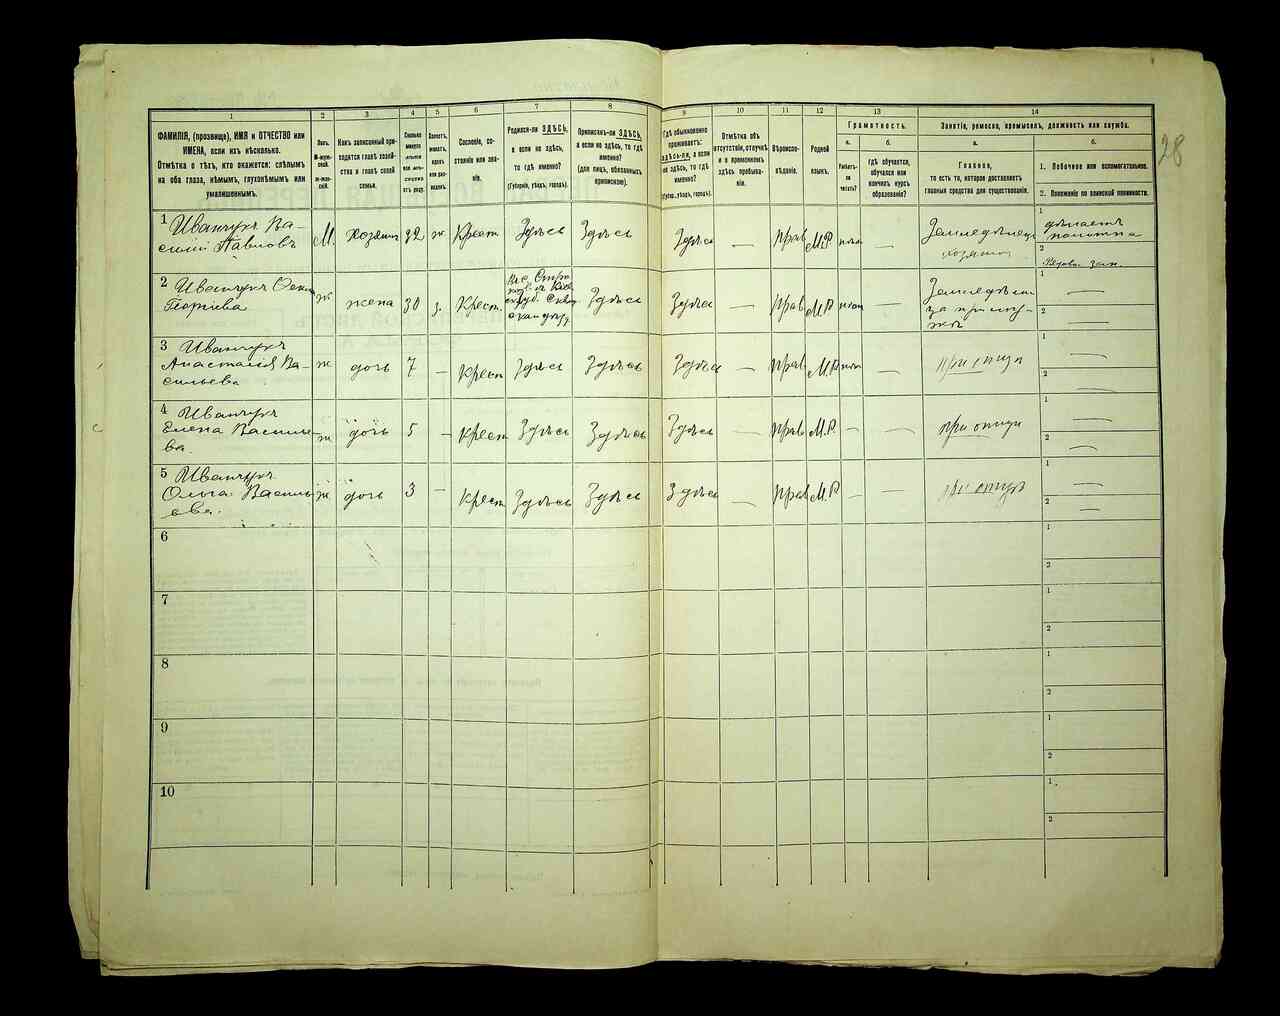 28
1 2 3 4 5 6 7 8 9 10 11 12 13 14
ФАМИЛІЯ, (прозвище), ИМЯ и ОТЧЕСТВО или
ИМЕНА, если ихъ нѣсколько.
Отмѣтка о тѣхъ, кто окажется: слѣпымъ
на оба глаза, нѣмымъ, глухонѣмымъ или
умалишеннымъ.
Полъ.
М-муж-
ской.
Ж-жен-
скій.
Какъ записанный при-
ходится главѣ хозяй-
ства и главѣ своей
семьи.
Сколько
минуло
лѣтъ
отъ роду.
Холостъ,
женатъ,
вдовъ
или раз-
веденъ.
Сословіе, со-
стояніе или зва-
ніе.
Родился-ли ЗДѢСЬ,
а если не здѣсь,
то гдѣ именно?
(Губернія, уѣздъ, городъ).
Приписанъ-ли ЗДѢСЬ,
а если не здѣсь, то гдѣ
именно?
(для лицъ, обязанныхъ
припискою).
Гдѣ обыкновенно
проживаетъ:
здѣсь-ли, а если
не здѣсь, то гдѣ
именно?
(Губер., уѣздъ, городъ).
Отмѣтка объ
отсутствіи, отлучкѣ
и о временномъ
здѣсь пребыва-
ніи.
Вѣроиспо-
вѣданіе.
Родной
языкъ.
Грамотность.
а. б.
Умѣетъ-
ли
читать?
гдѣ обучается,
обучался или
кончилъ курсъ
образованія?
Занятіе, ремесло, промыселъ, должность или служба.
а. б.
Главное,
то есть то, которое доставляетъ
главныя средства для существованія.
1. Побочное или вспомогательное.
2. Положеніе по воинской повинности.
1 Иванчукъ Ва-
силій Павловъ М. хозяинъ 32 ж Крест Здѣсь Здѣсь Здѣсь — прав М.Р. —
Земледѣлецъ
хозяинъ
1 дѣлаетъ
полотна
2
2 Иванчукъ
Георгіева ж жена 30 з. Крест. Здѣсь Здѣсь — прав М.Р. —
1 —
2 —
3 Иванчукъ
Анастасія Ва-
сильева ж дочь 7 — Крест Здѣсь Здѣсь Здѣсь — прав М.Р. — при отцѣ
1 —
2 —
4 Иванчукъ
Елена Василье-
ва. ж дочь 5 — Крест Здѣсь Здѣсь Здѣсь — прав М.Р. — — при отцѣ
1 —
2 —
5 Иванчукъ
Ольга Василь
ева. ж дочь 3 — Крест Здѣсь Здѣсь Здѣсь — прав М.Р. — — при отцѣ
1 —
2 —
6 1
2
7 1
2
8 1
2
9 1
2
10 1
2